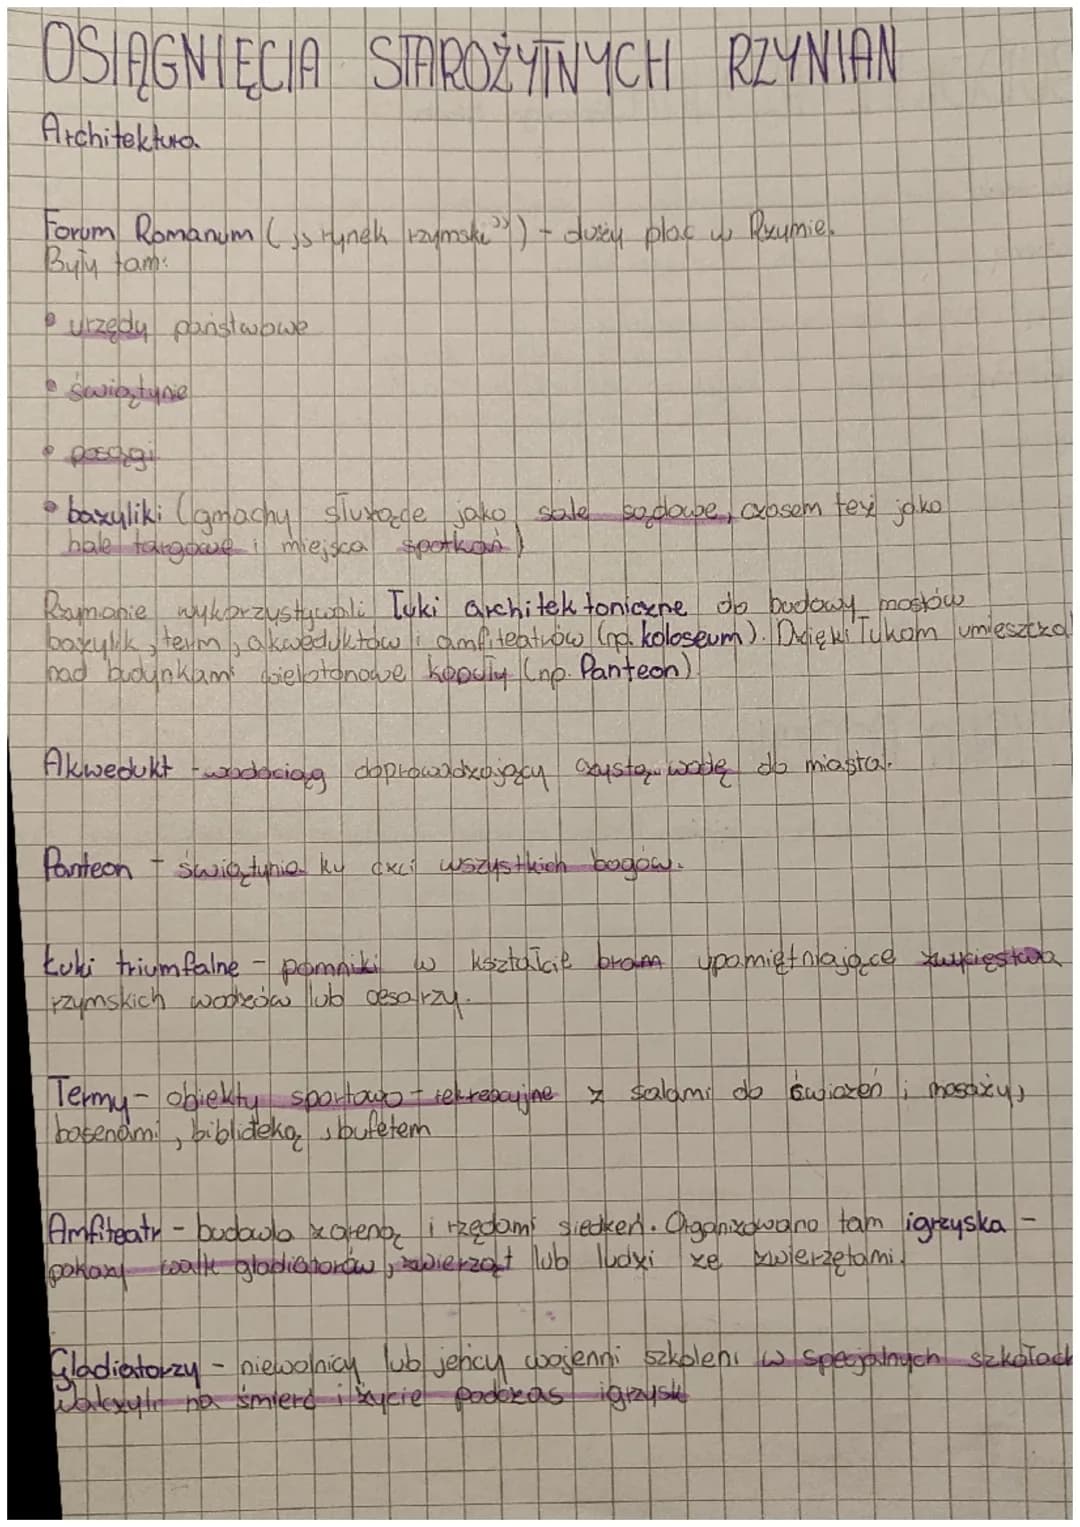 OSIĄGNIĘCIA STAROŻYTNYCH RZYNIAN
Architektura
Forum Romanum („rynek rzymski”) - duży plac w Rzymie.
Były tam:
• urzędy państwowe
• świątynie
• posągi
• bazyliki (gmachy służące jako sale sądowe, czasem też jako
hale targowe i miejsca spotkań)
Rzymianie wykorzystywali łuki architektoniczne do budowy mostów
bazylik, term, akweduktów i amfiteatrów (np. koloseum). Dzięki łukom umieszcza
nad budynkami wielotonowe kopuły (np. Panteon)
Akwedukt - wodociąg doprowadzający czystą wodę do miasta.
Panteon - świątynia ku czci wszystkich bogów.
Łuki triumfalne - pomniki w kształcie bram upamiętniające zwycięstwa
rzymskich wodzów lub cesarzy.
Termy - obiekty sportowo - rekreacyjne z salami do ćwiczeń i masaży,
basenami, biblioteką, bufetem
Amfiteatr - budowla z areną i rzędami siedzeń. Organizowano tam igrzyska -
pokazy walk gladiatorów, zwierząt lub ludzi ze zwierzętami.
Gladiatorzy - niewolnicy lub jeńcy wojenni szkoleni w specjalnych szkołach
Walczyli na śmierć i życie podczas igrzysk